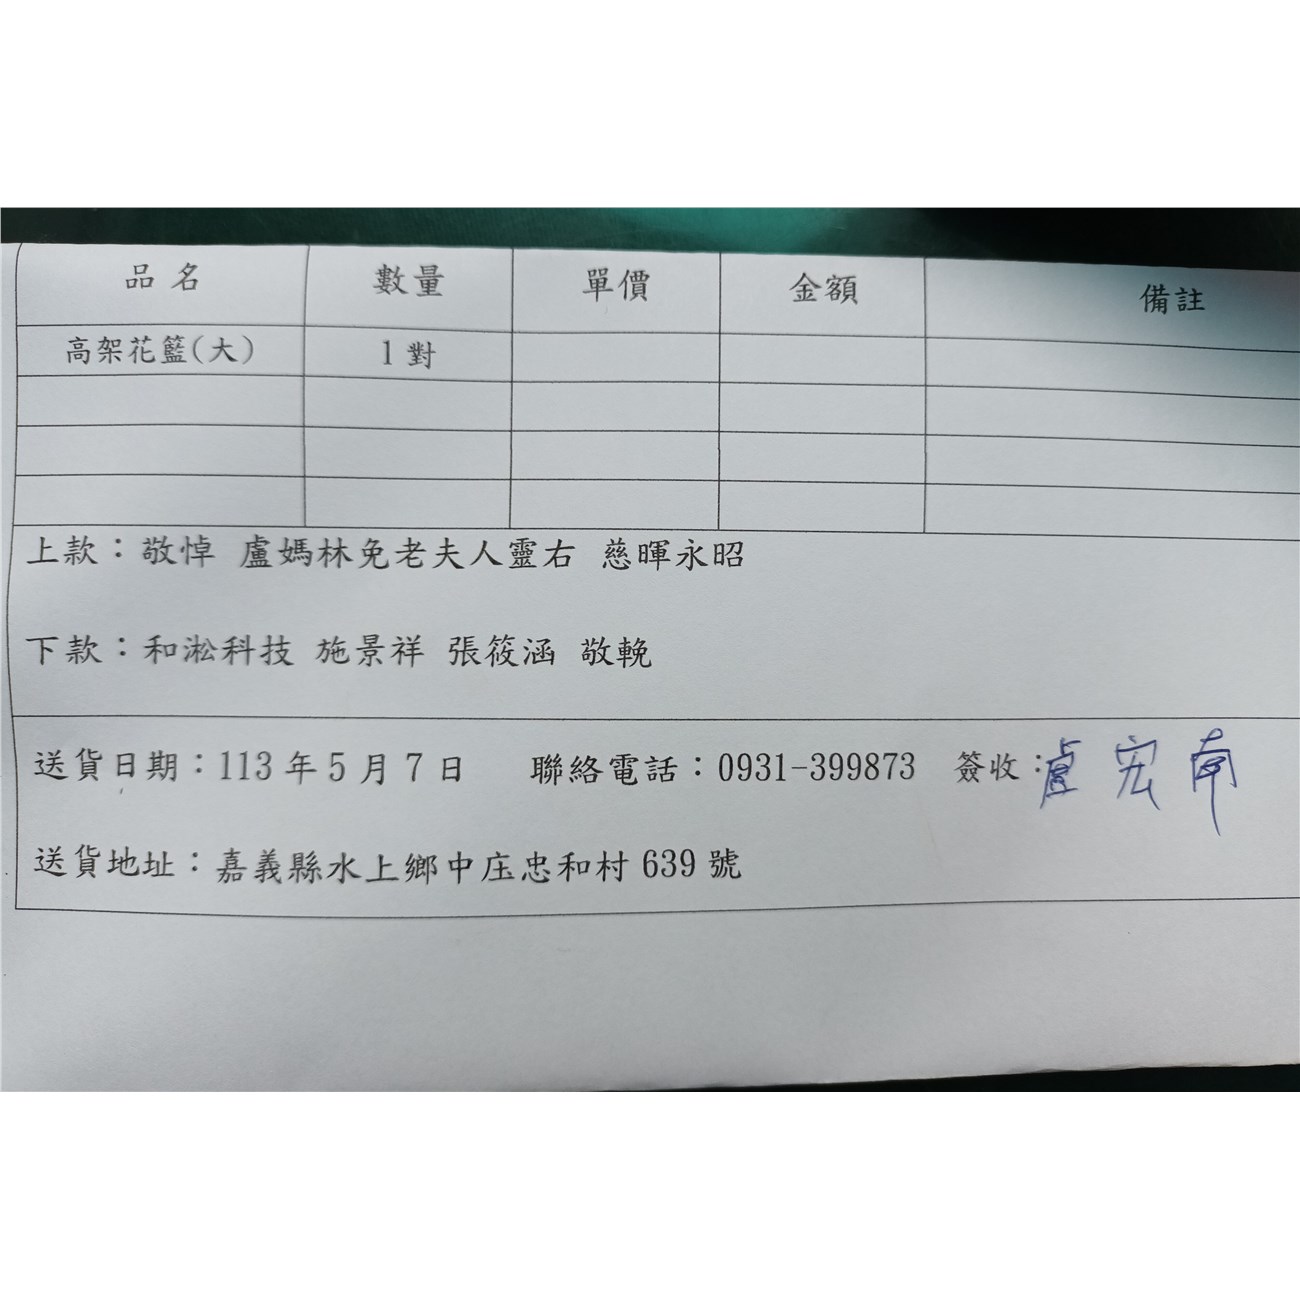 品名 數量 單價 金額 備註
高架花籃(大) 1對
上款：敬悼 盧媽林免老夫人靈右 慈暉永昭
下款：和淞科技 施景祥 張筱涵 敬輓
送貨日期：113年5月7日 聯絡電話：0931-399873 簽收：盧宏南
送貨地址：嘉義縣水上鄉中庄忠和村639號